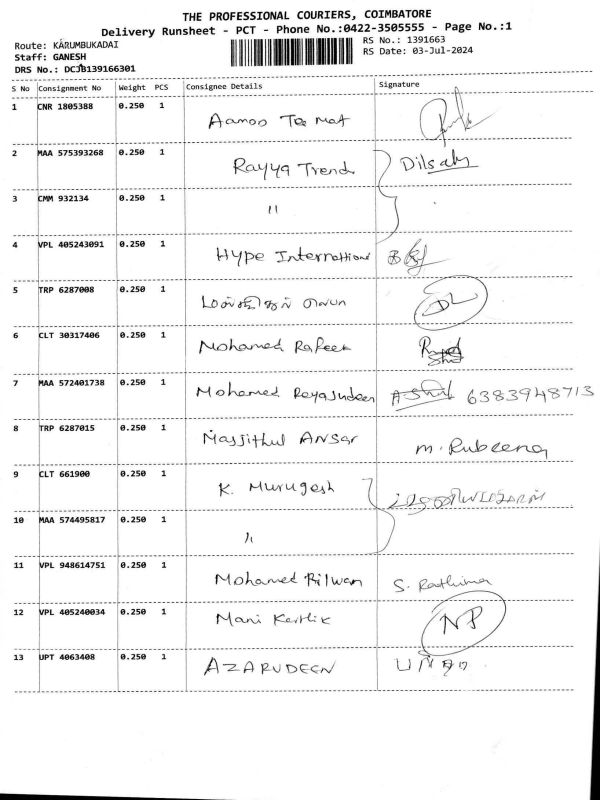 THE PROFESSIONAL COURIERS, COIMBATORE
Delivery Runsheet - PCT - Phone No.:0422-3505555 - Page No.:1
Route: KARUMBUKADAI
RS No.: 1391663
Staff: GANESH
RS Date: 03-Jul-2024
DRS No.: DCJB139166301
S No Consignment No Weight PCS Consignee Details Signature
1 CNR 1805388 0.250 1
2 MAA 575393268 0.250 1 Rayya Trend Dilsath
3 CMM 932134 0.250 1 "
4 VPL 405243091 0.250 1 Hype International
5 TRP 6287008 0.250 1 DL
6 CLT 30317406 0.250 1 Mohamed Rafeek
7 MAA 572401738 0.250 1 Mohamed Reyajudeen 6383948713
8 TRP 6287015 0.250 1 Massjithul Ansar m. Rubeena
9 CLT 661900 0.250 1 K. Murugesh
10 MAA 574495817 0.250 1 "
11 VPL 948614751 0.250 1 Mohamed Rilwan S. Rathima
12 VPL 405240034 0.250 1 Mani Karthik NP
13 UPT 4063408 0.250 1 AZARUDEEN